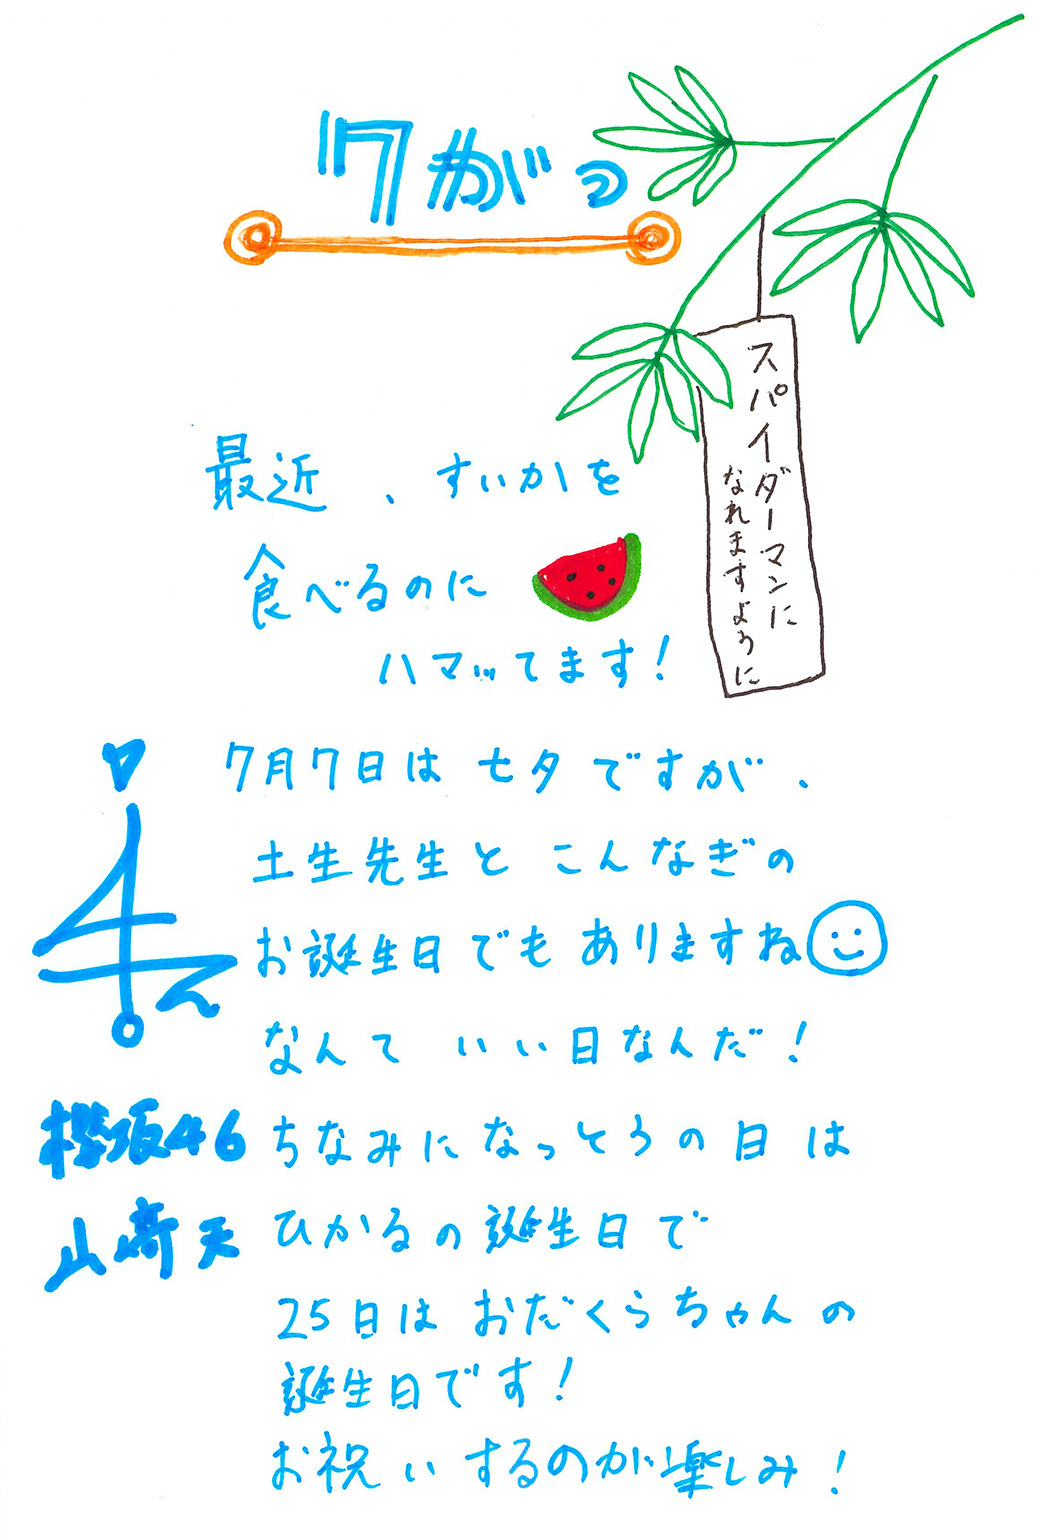 7がつ
スパイダーマンに
なれますように
最近、すいかを
食べるのに
ハマッてます!
7月7日は七夕ですが、
土生先生とこんなぎの
お誕生日でもありますね
なんていい日なんだ!
ちなみになっとうの日は
ひかるの誕生日で
25日はおだくらちゃんの
誕生日です!
お祝いするのが楽しみ!
櫻坂46
山﨑天